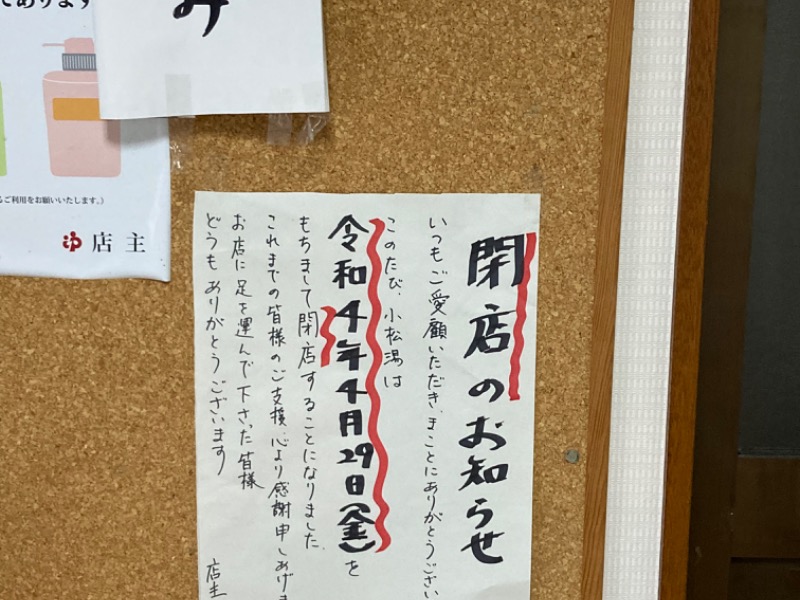 であります
み
るご利用をお願いいたします。)
ゆ 店主
閉店のお知らせ
いつもご愛顧いただき、まことにありがとうござい
このたび、小松湯は
令和4年4月29日(金)を
もちまして閉店することになりました。
これまでの皆様のご支援、心より感謝申しあげま
お店に足を運んで下さった皆様
どうもありがとうございます
店主